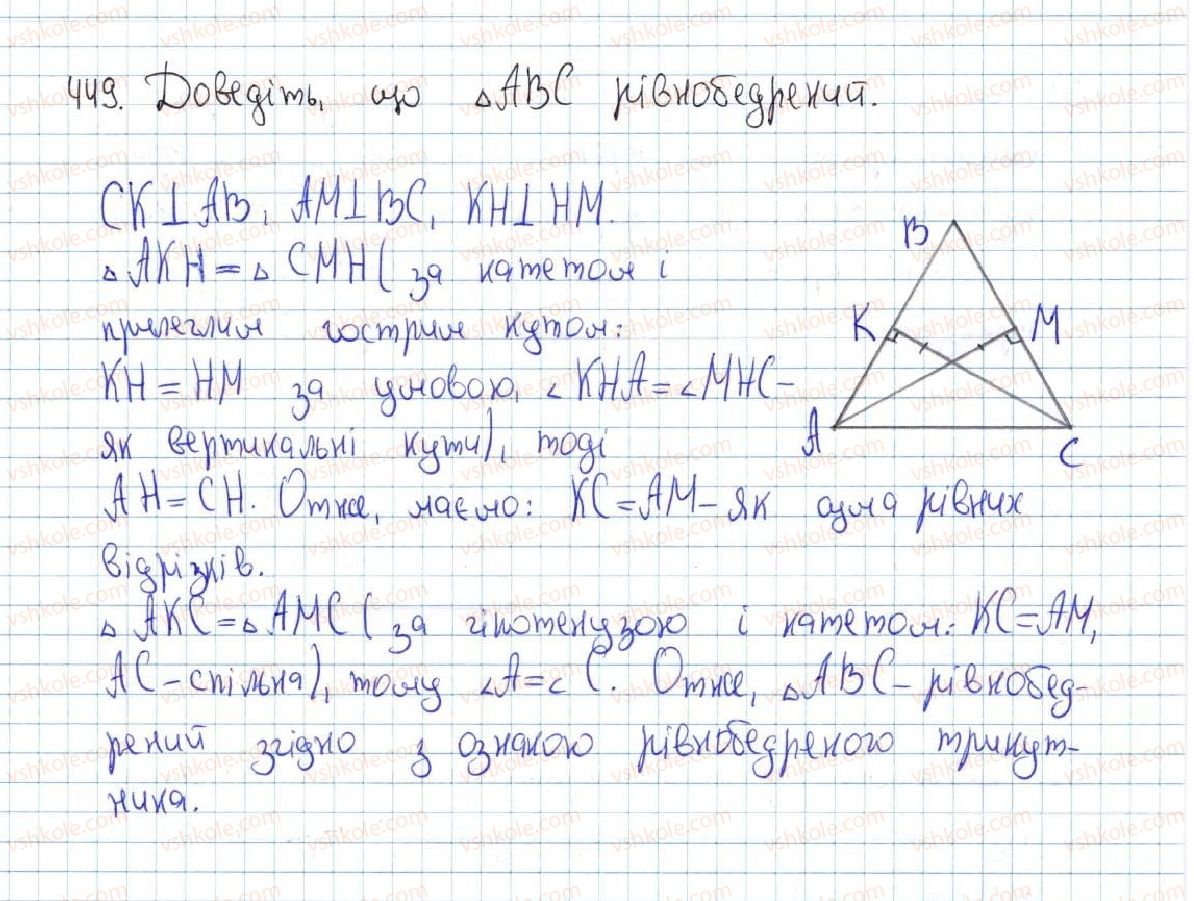 449. Доведіть, що △ABC рівнобедрений.
CK⊥AB, AM⊥BC, KH⊥HM.
△AKH=△CMH (за катетом і
прилеглим гострим кутом:
KH=HM за умовою, ∠KHA=∠MHC-
як вертикальні кути), тоді
AH=CH. Отже, маємо: KC=AM-як сума рівних
відрізків.
△AKC=△AMC (за гіпотенузою і катетом: KC=AM,
AC-спільна), тому ∠A=∠C. Отже, △ABC-рівнобед-
рений згідно з ознакою рівнобедреного трикут-
ника.
B
K M
A C
vshkole.com